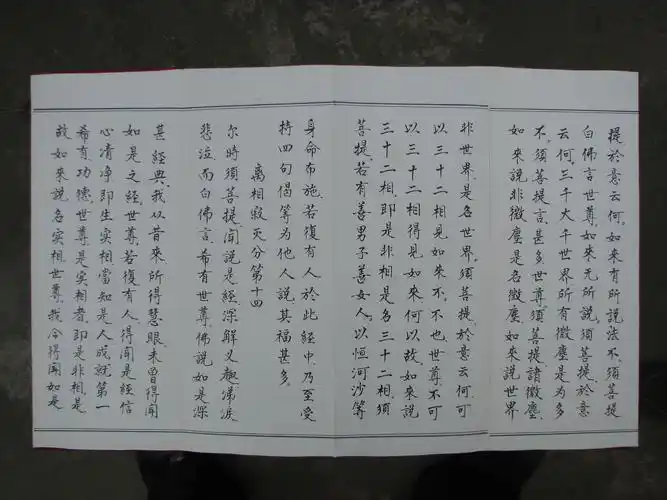 提於意云何。如來有所說法不。須菩提
白佛言世尊。如來无所說。須菩提。於意
云何。三千大千世界所有微塵是为多
不。須菩提言。甚多。世尊。須菩提。諸微塵。
如來說非微塵。是名微塵。如來說世界
非世界。是名世界。須菩提。於意云何。可
以三十二相見如來不。不也。世尊。不可
以三十二相得見如來。何以故。如來說
三十二相。即是非相。是名三十二相。須
菩提。若有善男子善女人。以恒河沙等
身命布施。若復有人。於此經中。乃至受
持四句偈等。为他人說。其福甚多。
離相寂灭分第十四
尔時須菩提。聞說是經。深解义趣。涕淚
悲泣。而白佛言。希有世尊。佛說如是深
甚經典。我从昔來所得慧眼。未曾得聞
如是之經。世尊。若復有人。得聞是經。信
心清净。即生实相。當知是人。成就第一
希有功德。世尊。是实相者。即是非相。是
故如來說名实相。世尊。我今得聞如是